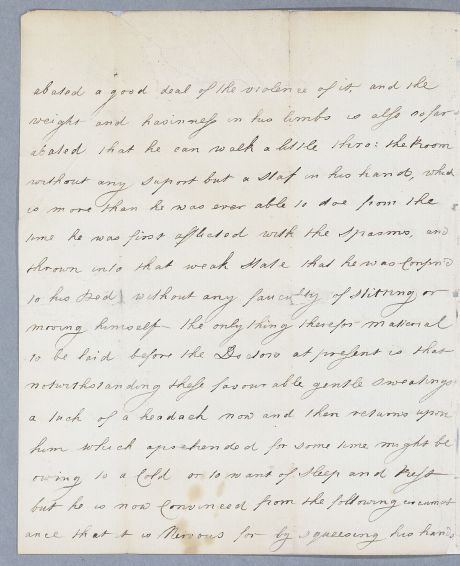 abated a good deal of the violence of it, and the
weight and in his limbs is also so far
abated that he can walk a little thro: the Room
without any suport but a Staf in his hand, which
is more than he was ever able to doe from the
time he was first afflicted with the Spasms, and
thrown into that weak State that he was Confin'd
to his Bed without any of Stirring or
moving himself— the only thing therefor material
to be laid before the Doctors at present is that
notwithstanding these favourable gentle sweatings
a tuch of a headach now and then returns upon
him which aprehended for some time might be
owing to a Cold or to want of Sleep and Rest—
but he is now Convinced from the following circumst
ance that it is Nervous for by squeesing his hands